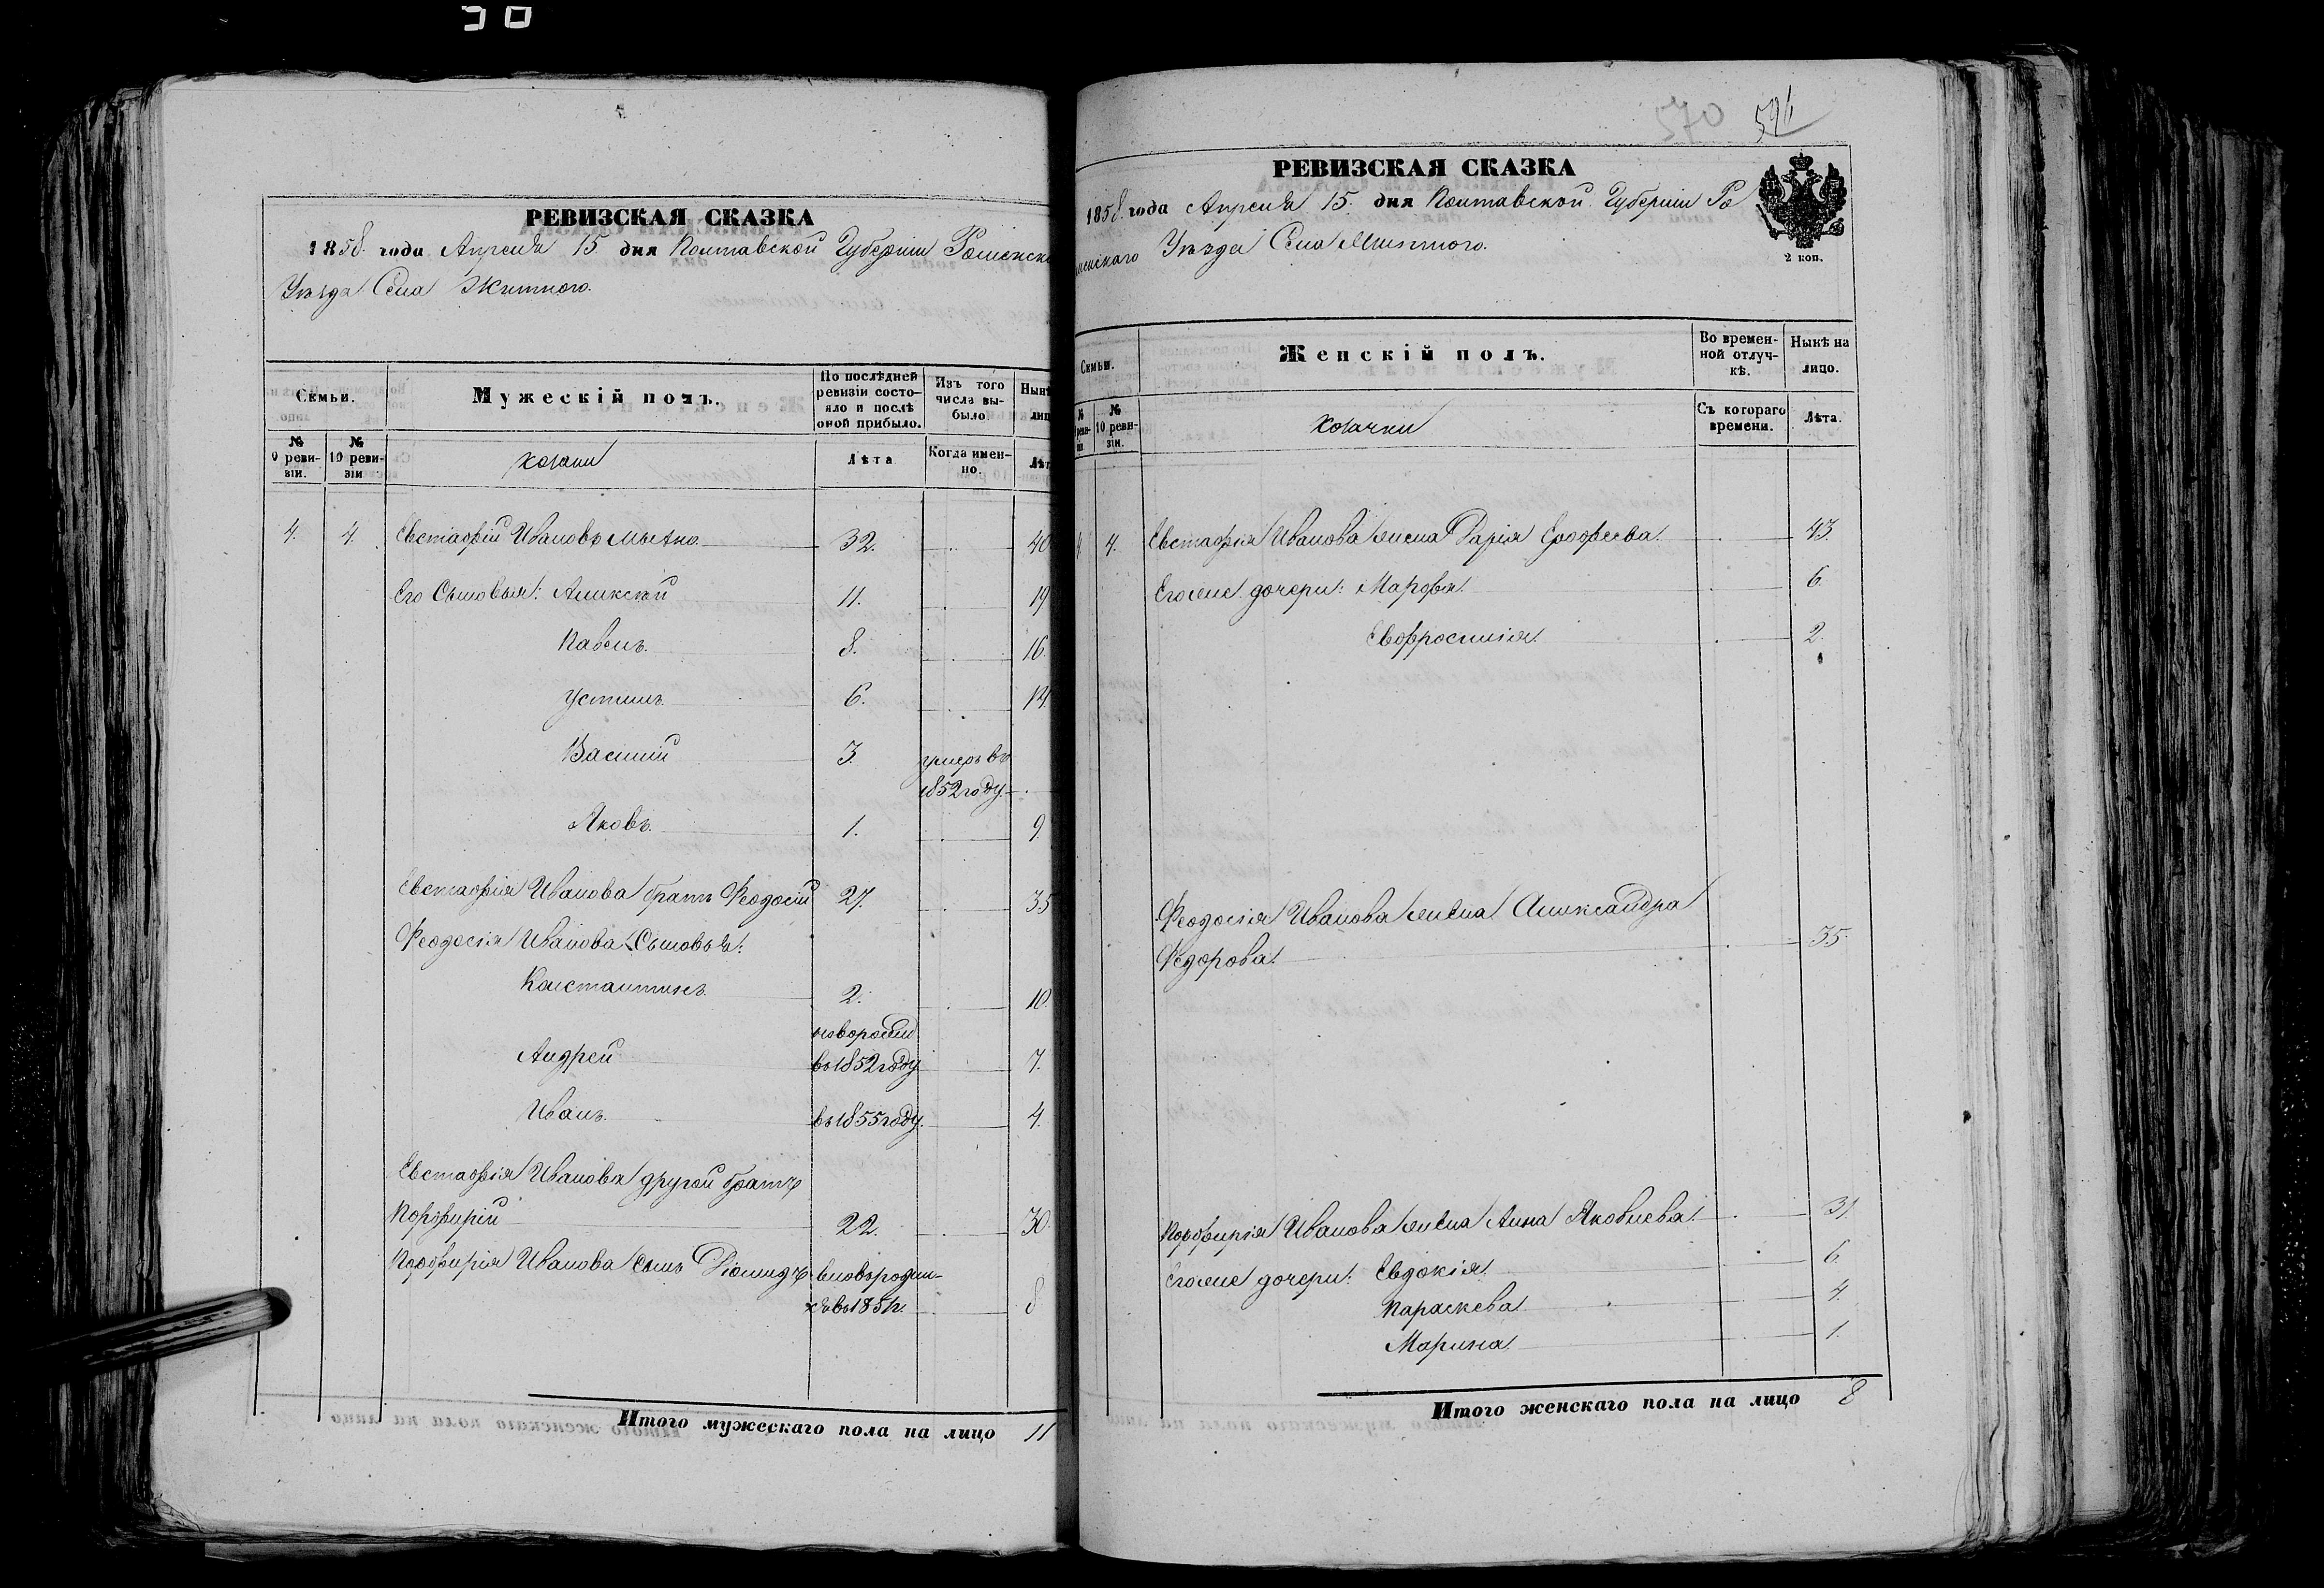 РЕВИЗСКАЯ СКАЗКА
1858. года Апреля 15. дня Полтавской Губерніи Роменска
Уѣзда Села Житного.
Семьи.
Мужескій полъ.
По послѣдней ревизіи состояло и послѣ оной прибыло.
Изъ того числа выбыло.
Нынѣ лиц
№ 9 ревизіи.
№ 10 ревизіи
Козаки
Лѣта
Когда именно.
Лѣт
4. 4. Евстафій Ивановъ 32. 40
Его Сыновья: Алексѣй 11. 19
Павелъ. 8. 16.
Устинъ. 6. 14.
Василій 3. умеръ въ
1852 году.
Яковъ. 1. 9
Евстафія Иванова братъ Феодосій 27. 35
Феодосія Иванова Сыновья:
Константинъ. 2. 10.
Андрей въ 1852 году 7.
Иванъ. въ 1855 году. 4.
Евстафія Иванова другой братъ
Порфирій 22. 30.
Порфирія Иванова сынъ Діомидъ вновьродил-
8
Итого мужескаго пола на лицо 11
570 596
РЕВИЗСКАЯ СКАЗКА
1858. года Апреля 15. дня Полтавской Губерніи Ро
менскаго Уѣзда Села Житного.
2 коп.
Семьи.
Женскій полъ.
Во временной отлучкѣ.
Нынѣ на лицо.
№ реви- зіи
№ 10 ревизіи.
Козачки
Съ котораго времени.
Лѣта.
4 4. Евстафія Иванова жена Дарія Ерофеева. 43.
Егожие дочери: Марфа. 6
Евфросинія. 2.
Феодосія Иванова жена Александра
Федорова. 35.
Порфирія Иванова жена Анна Яковлева. 31.
Егожие дочери: Евдокія. 6.
Параскева. 4.
Марина. 1.
Итого женскаго пола на лицо 8